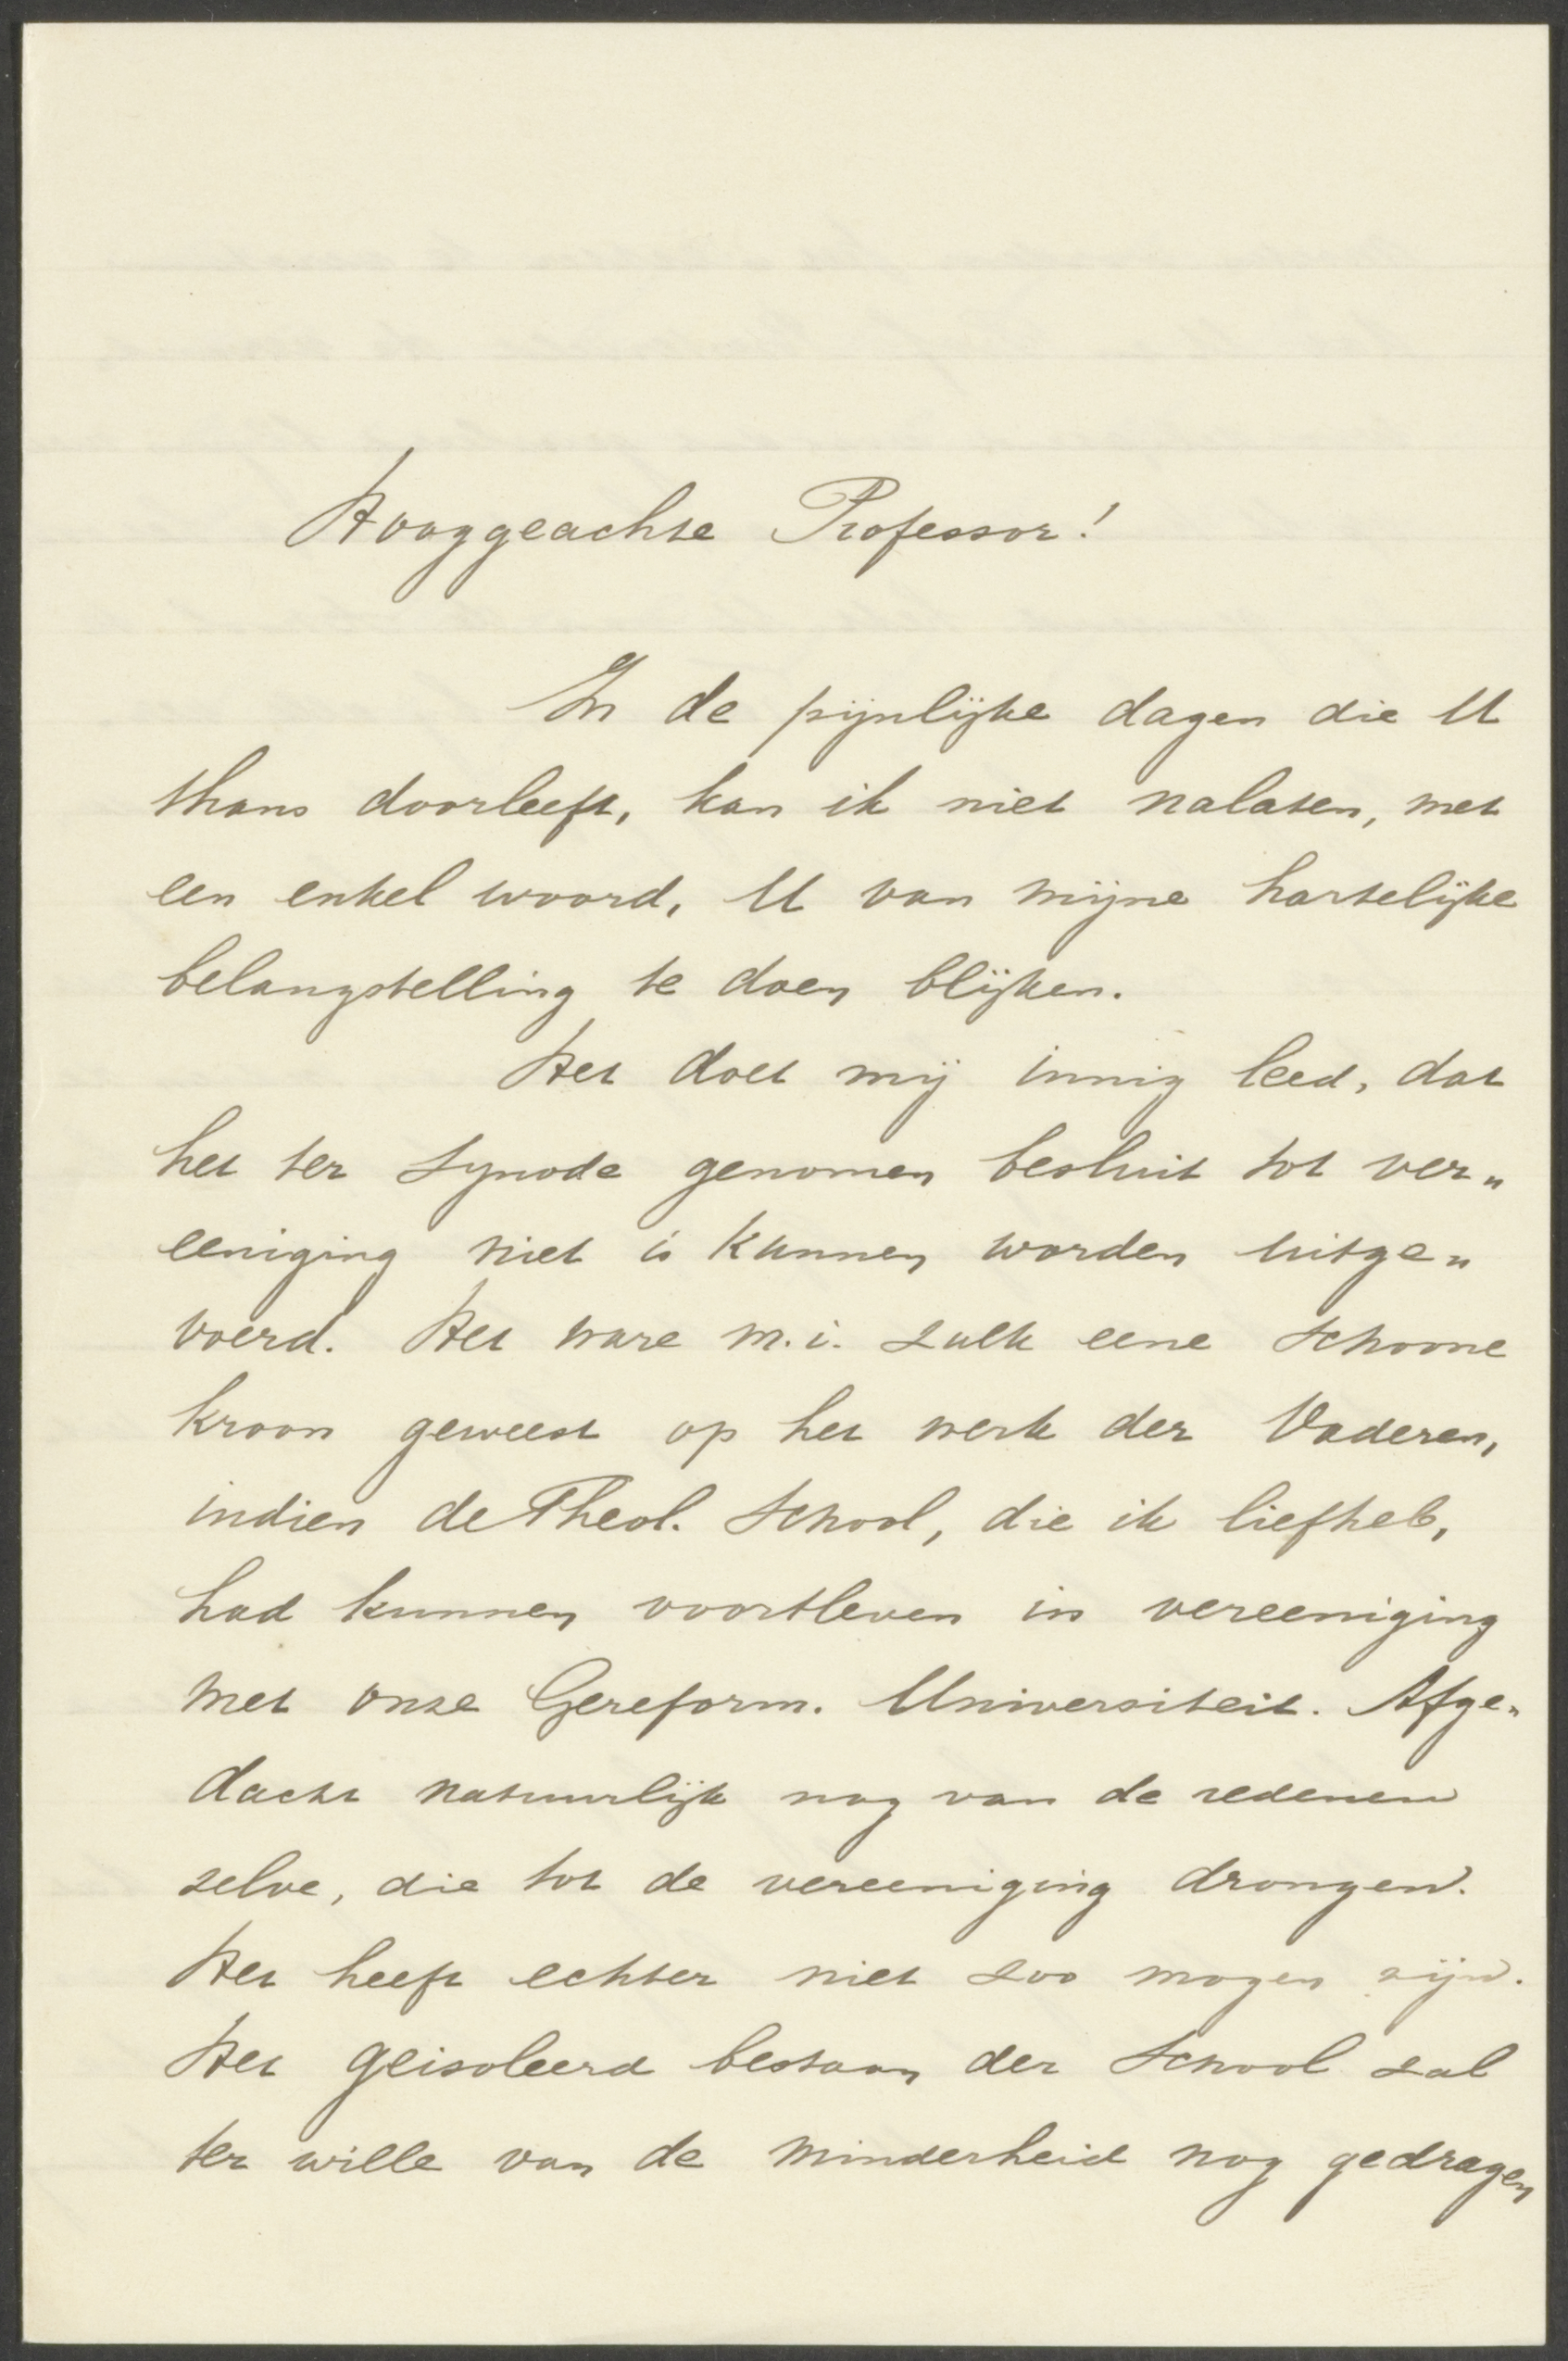 Hooggeachte Professor!
In de pijnlijke dagen die U
thans doorleeft, kan ik niet nalaten, met
een enkel woord, U van mijne hartelijke
belangstelling te doen blijken.
Het doet mij innig leed, dat
het ter Synode genomen besluit tot ver„
eeniging niet is kunnen worden uitge„
voerd. Het ware m.i. zulk eene schoone
kroon geweest op het werk der Vaderen,
indien de Theol. School, die ik liefheb,
had kunnen voortleven in vereeniging
met onze Gereform. Universiteit. Afge„
dacht natuurlijk nog van de redenen
zelve, die tot de vereeniging drongen.
Het heeft echter niet zoo mogen zijn.
Het geisoleerd bestaan der School zal
ter wille van de minderheid nog gedragen